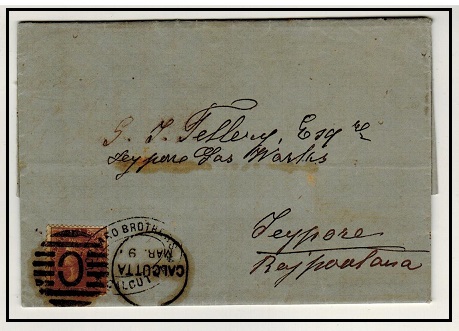 S. J. Tellery, Esq re
Jeypore Gas Works
Jeypore
Rajpootana
BROTHERS
CALCUTTA
MAR. 9.
C